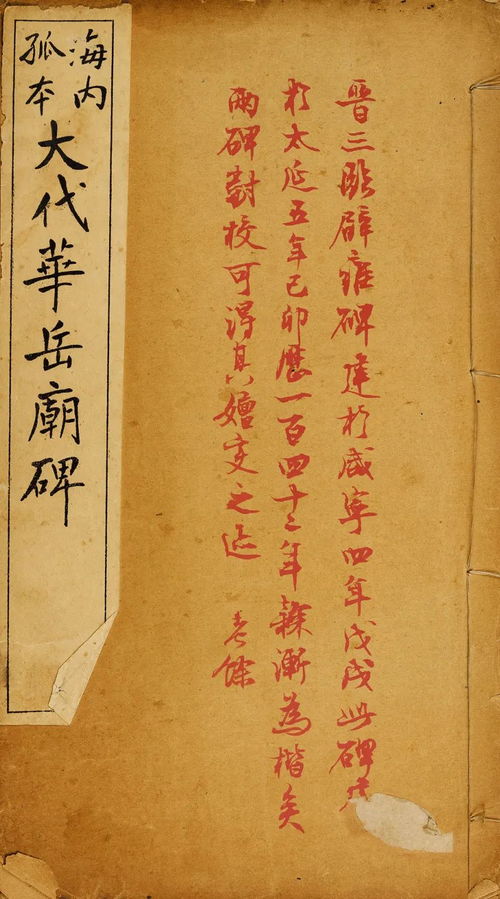 晉三臨辟雍碑建扵咸寧四年戊戌此碑
扵太延五年己卯歷一百四十二年隸漸為楷矣
兩碑對校可得其嬗变之迹 餘
海内
孤本
大代華岳廟碑